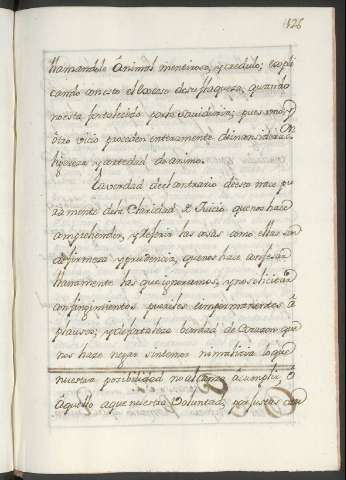 126
llamandole Animal mentiroso, y credulo; expli
cando con esto el exceso de su flaqueza, quando
no esta fortalecido por la Sauiduria; pues uno, y
otro vicio proceden enteramente de inconsiderac.on
ligereza y cortedad de animo.
La verdad de el contrario de esto nace pu
ramente de la Claridad de Juicio que nos hace
comprehender, y referir las cosas como ellas son
de firmeza y prudencia, que nos hace confesar
llanamente las que ignoramos, y no solicitar
con fingimientos pueriles impermanentes A
plausos; y de fortaleza bondad de Corazon que
nos haze negar sin temor ni malicia lo que
nuestra posibilidad no alcanza á cumplir, ó
Aquello aque nuestra Voluntad, por justas cau